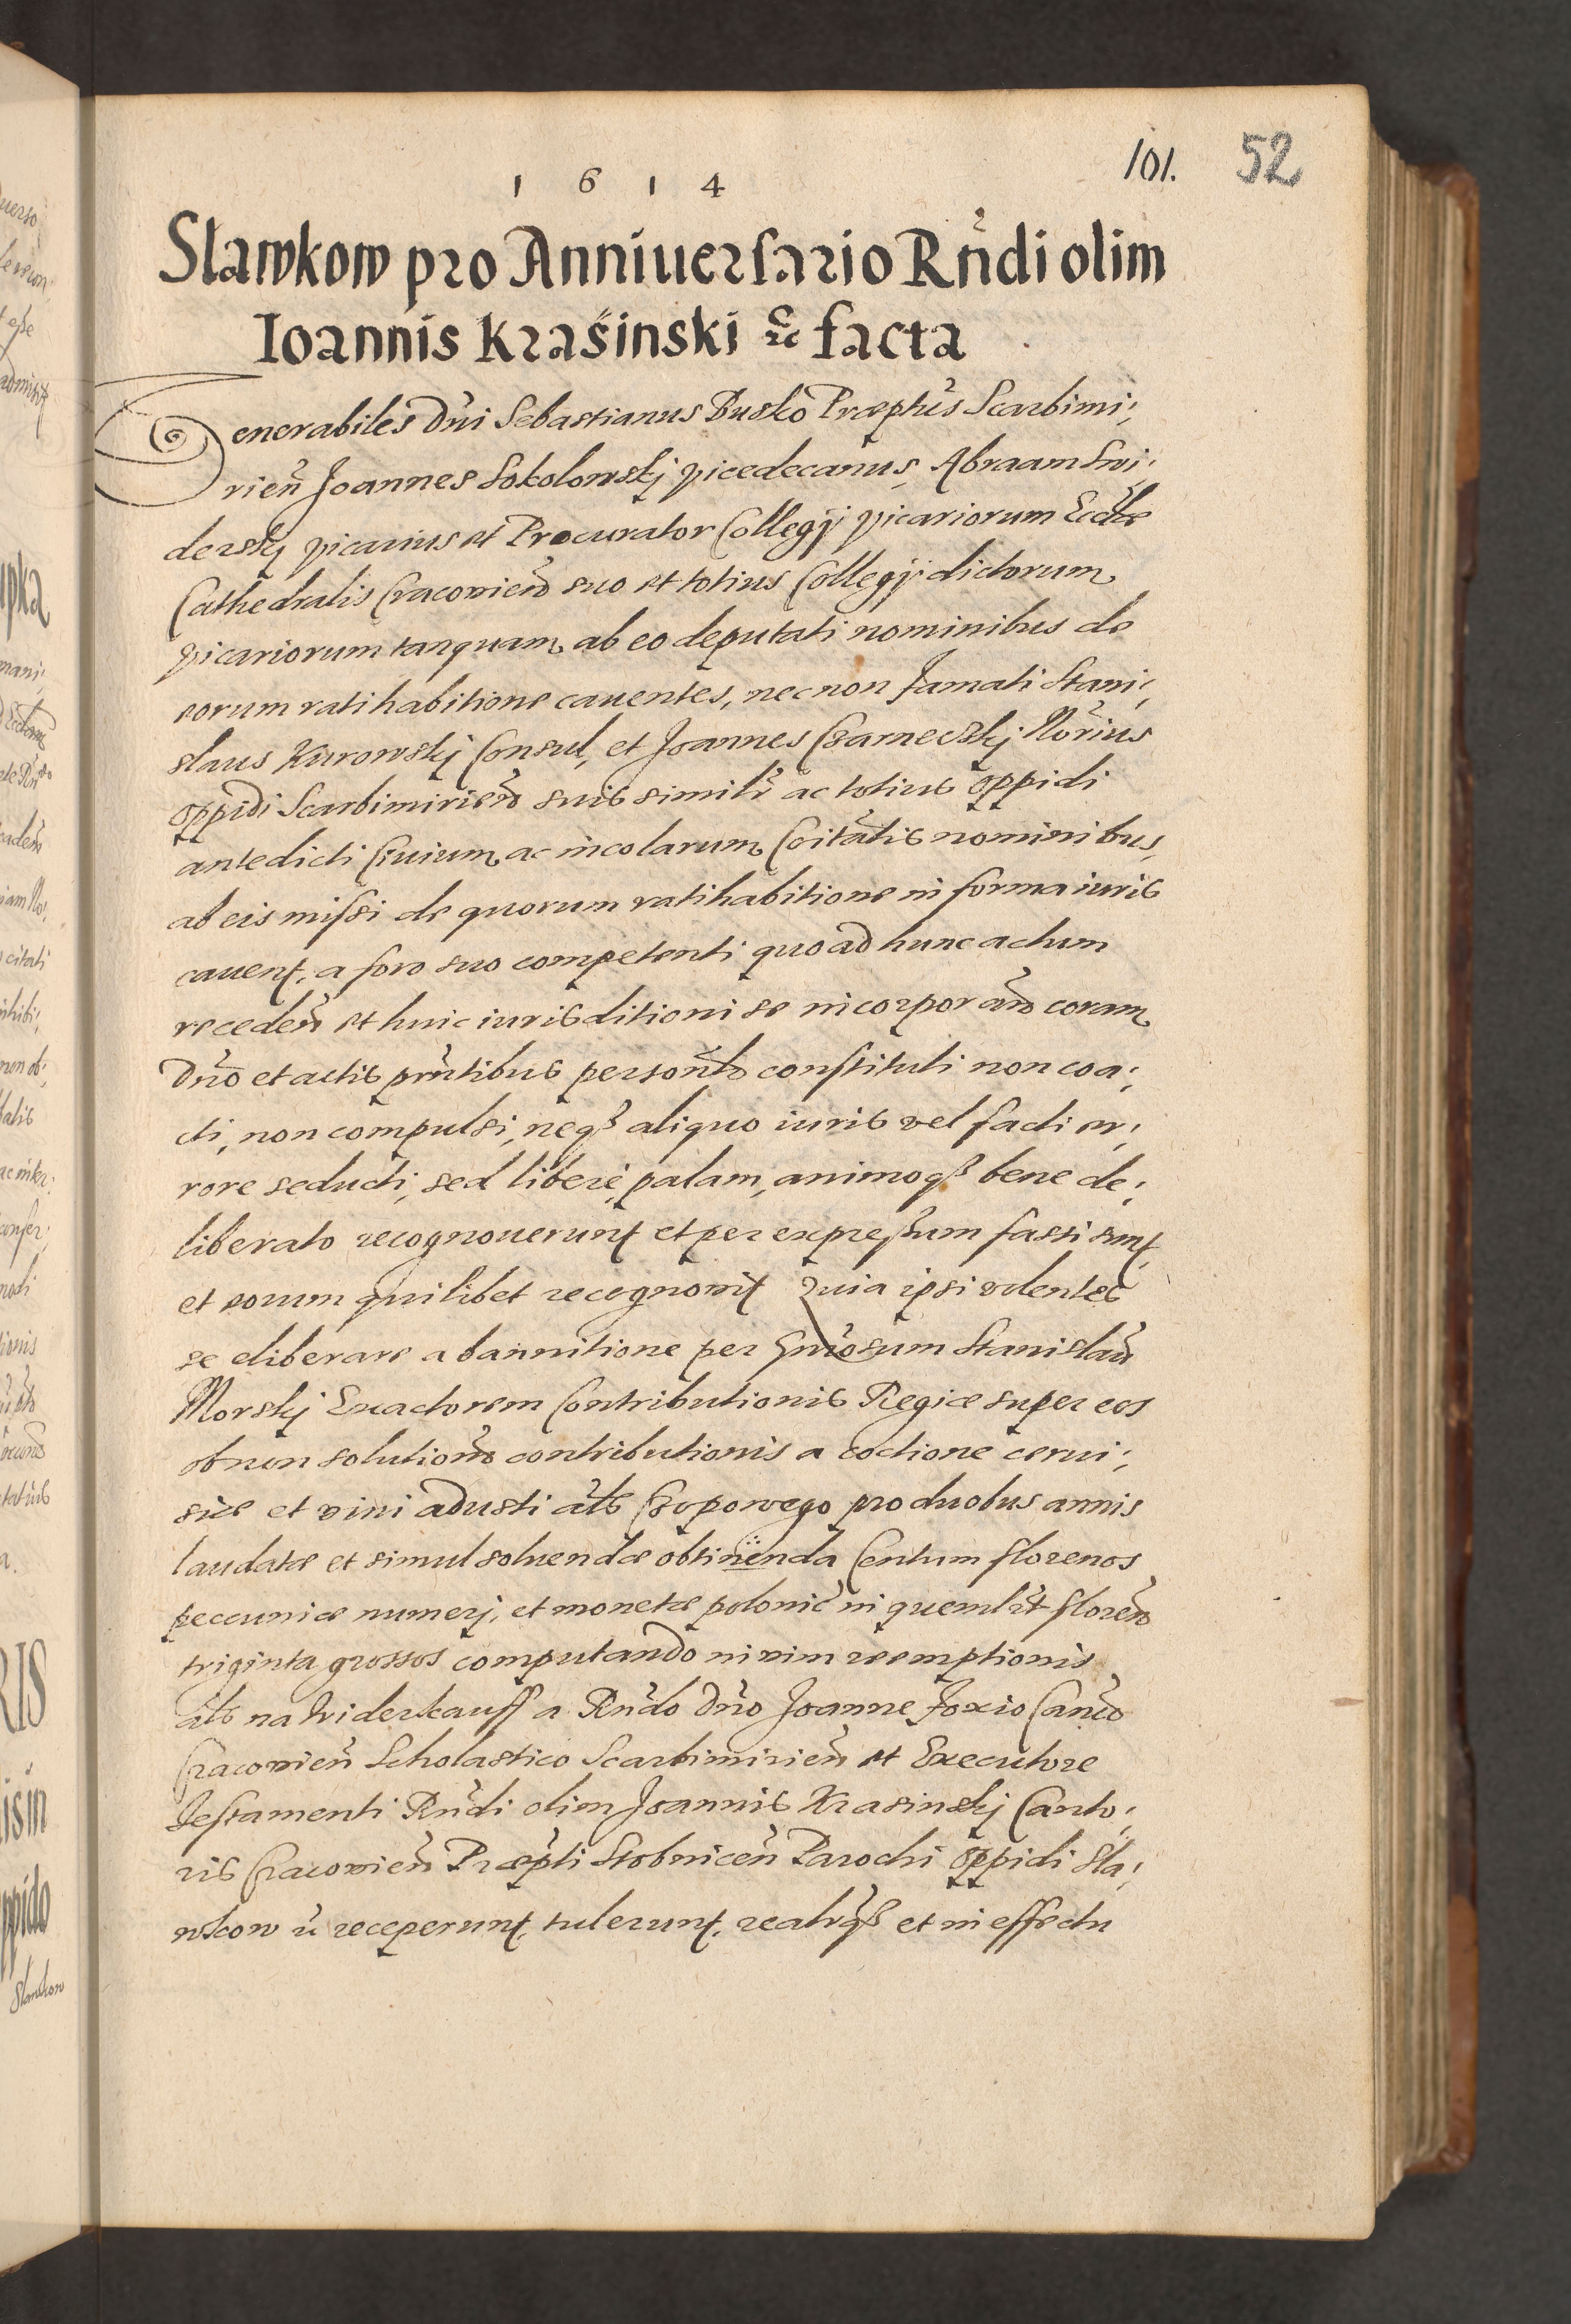 1614
101. 52
Slawkow pro Anniuersario Rñdi olim
Ioannis Kraśinski &c facta
Venerabiles Dni Sebastianus Busko Præptus Scarbimi:
rień Joannes Sokolowskj vicedecanus, Abraam Swi:
derskj vicarius et Procurator Collegij vicariorum Eccłæ
Cathedralis Cracovień suo et totius Collegij dictorum
vicariorum tanquam ab eo deputati nominibus de
eorum ratihabitione cauentes, necnon famati Stani:
slaus Kurowskj Consul, et Joannes Czarneczkj Norius
oppidi Scarbimirień suis similr ac totius oppidi
antedicti Ciuium ac incolarum Coitatis nominibus,
ab eis missi de quorum ratihabitione in forma iuris
cauent, a foro suo competenti quo ad hunc actum
receden et huic iurisditioni se incorporań coram
Dno et actis pntibus personlr constituti non coa:
cti, non compulsi, neqꝫ aliquo iuris vel facti er:
rore seducti, sed liberè, palam, animoqꝫ bene de:
liberato recognouerunt et per expressum fassi sunt
et eorum quilibet recognouit Quia ipsi volentes
se eliberare a bannitione per Gnrosum Stanislaũ
Morskj Exactorem Contributionis Regiæ super eos
ob non solutionẽ contributionis a coctione cerui:
siæ et vini adusti als Czopowego pro duobus annis
laudatæ et simul soluendæ obtinenda Centum florenos
peccuniæ numerj, et monetæ polonic in quemlibt floreń
triginta grossos computando in vim reemptionis
als na widerkauff a Rndo Dno Joanne Foxio Canco
Cracovień Scholastico Scarbimirień et Executore
Testamenti Rndi olim Joannis Krasinskj Canto:
ris Cracovień Præpti Stobniceń Parochi oppidi Sla:
wkow &c receperunt, tulerunt, realrqꝫ et in effectu